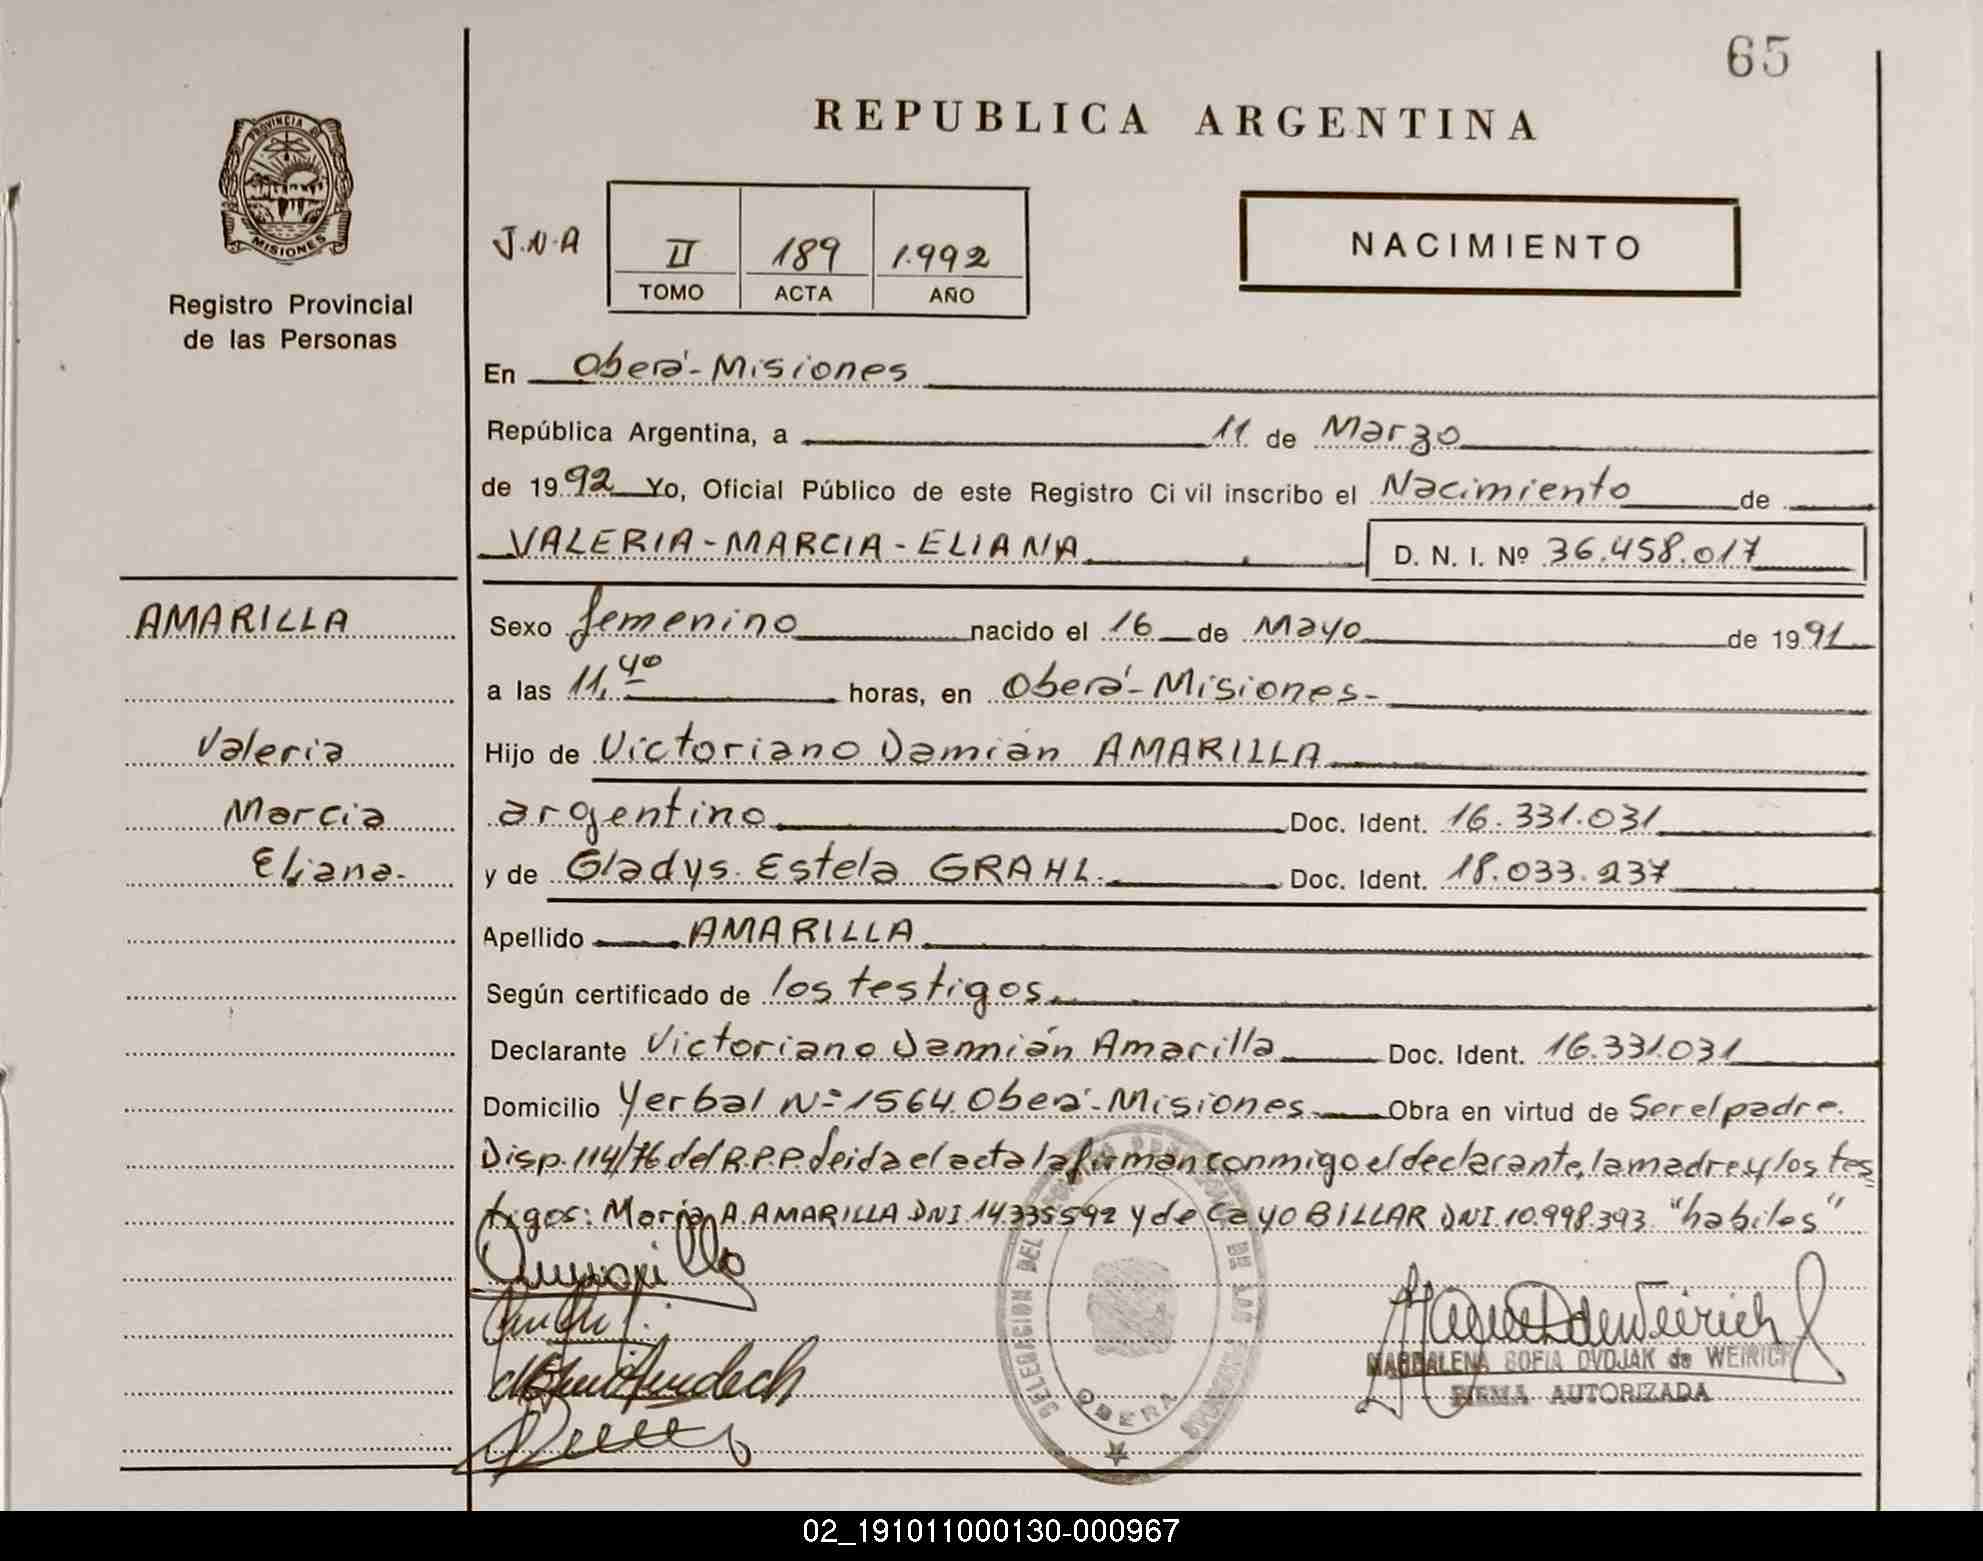 65
REPUBLICA ARGENTINA
PROVINCIA DE
MISIONES
Registro Provincial
de las Personas
J.N.A
II 189 1.992
TOMO ACTA AÑO
NACIMIENTO
En Oberá-Misiones
República Argentina, a 11 de Marzo
de 1992 Yo, Oficial Público de este Registro Civil inscribo el Nacimiento de
VALERIA-MARCIA-ELIANA D. N. I. Nº 36.458.017
AMARILLA
Valeria
Marcia
Eliana-
Sexo femenino nacido el 16 de Mayo de 1991
a las 11,40 horas, en Oberá-Misiones-
Hijo de Victoriano Damián AMARILLA
argentino Doc. Ident. 16.331.031
y de Gladys Estela GRAHL. Doc. Ident. 18.033.237
Apellido AMARILLA
Según certificado de los testigos.
Declarante Victoriano Damián Amarilla Doc. Ident. 16.331.031
Domicilio Yerbal Nº 1564. Oberá-Misiones Obra en virtud de Ser el padre.
Disp. 114/76 del R.P.P. leida el acta la firman conmigo el declarante, la madre y los tes
tigos: María A. AMARILLA DNI 14.335592 y de Cayo BILLAR DNI. 10.998.393 "habiles"
DELEGACION DEL REGISTRO PROVINCIAL DE LAS PERSONAS
OBERA
MAGDALENA SOFIA DVOJAK de WEIRICH
FIRMA AUTORIZADA
02_191011000130-000967